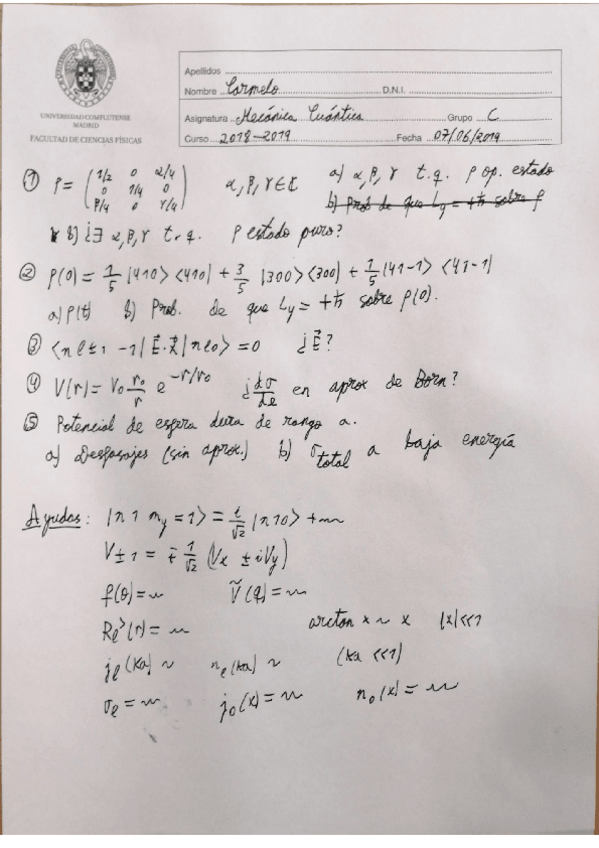 UNIVERSIDAD COMPLUTENSE
MADRID
FACULTAD DE CIENCIAS FÍSICAS
Apellidos
Nombre Carmelo D.N.I.
Asignatura Mecánica Cuántica Grupo C
Curso 2018-2019 Fecha 07/06/2019
① ρ = (1/2 0 α/4 α, β, γ ∈ ℂ a) α, β, γ t.q. ρ op. estado
0 1/4 0
β/4 0 γ/4) b) Prob de que Ly = +ħ sobre ρ
b) ¿∃ α, β, γ t.q. ρ estado puro?
② ρ(0) = 1/5 |410><410| + 3/5 |300><300| + 1/5 |41-1><41-1|
a) ρ(t) b) Prob. de que Ly = +ħ sobre ρ(0).
③ <n l±1 -1| E⃗·X⃗ |n l 0> = 0 ¿E⃗?
④ V(r) = V₀ r₀/r e^(-r/r₀) ¿dσ/dΩ en aprox de Born?
⑤ Potencial de esfera dura de rango a.
a) Desfasajes (sin aprox.) b) σ total a baja energía
Ayudas: |n 1 my = 1> = i/√2 |n 1 0> + ~
V±1 = ∓ 1/√2 (Vx ± iVy)
f(θ) = ~ Ṽ(q) = ~
Rl^>(r) = ~ arctan x ~ x |x|<<1
jl(ka) ~ nl(ka) ~ (ka <<1)
σl = ~ j₀(x) = ~ n₀(x) = ~